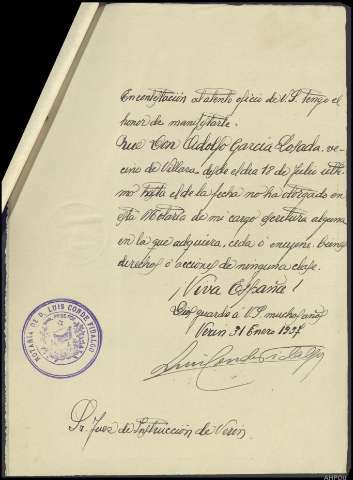 En contestación al atento oficio de V.S. tengo el
honor de manifestarle.
Que Don Adolfo Garcia Losada, ve-
cino de Villara, desde el día 18 de Julio últi-
mo hasta el de la fecha no ha otorgado en
esta Notaría de mi cargo escritura alguna
en la que adquiera, ceda ó enajene bienes
derechos ó acciones de ninguna clase.
¡Viva España!
Dios guarde a V.S. muchos años
Verin 31 Enero 1937
Luis Conde Fidalgo
NOTARIA DE D. LUIS CONDE FIDALGO
Sr. Juez de Instrucción de Verin.
AHPOU